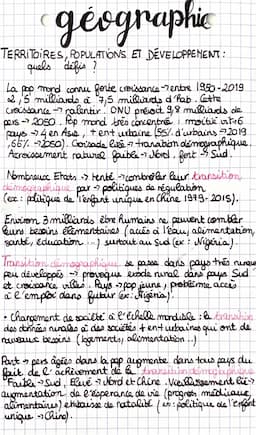 géographie
TERRITOIRES, POPULATIONS ET DÉVELOPPEMENT :
quels défis ?
La pop mond connu forte croissance → entre 1950 - 2019
2,5 milliards à 7,5 milliards d'hab. Cette
croissance → ralentir. ONU prévoit 9,8 milliards de
pers → 2050. Pop mond très concentrée : moitié vit 6
pays → 4 en Asie, + en + urbaine (55% d'urbains → 2019
, 66% → 2050). Croissance liée → transition démographique.
Accroissement naturel faible → Nord, fort → Sud.
Nombreux États → tenté → contrôler leur transition
démographique par → politiques de régulation
(ex : politique de l'enfant unique en Chine 1979 - 2015).
Environ 3 milliards être humains ne peuvent combler
leurs besoins élémentaires (accès à l'eau, alimentation,
santé, éducation ...) surtout au Sud (ex : Nigéria).
Transition démographique se passe dans pays très ruraux
peu développés → provoque exode rural dans pays Sud
et croissance villes. Pays → pop jeune, problème accès
à l'emploi dans futur (ex : Nigéria).
• Changement de société à l'échelle mondiale : la transition
des données rurales à des sociétés + en + urbaines qui ont de
nouveaux besoins (logements, alimentation ...)
Part → pers âgées dans la pop augmente dans tous pays du
fait de l'achèvement de la transition démographique
Faible → Sud, Élevé → Nord et Chine. Vieillissement lié →
augmentation de l'espérance de vie (progrès médicaux,
alimentaires) et baisse de natalité (ex : politique de l'enfant
unique → Chine).